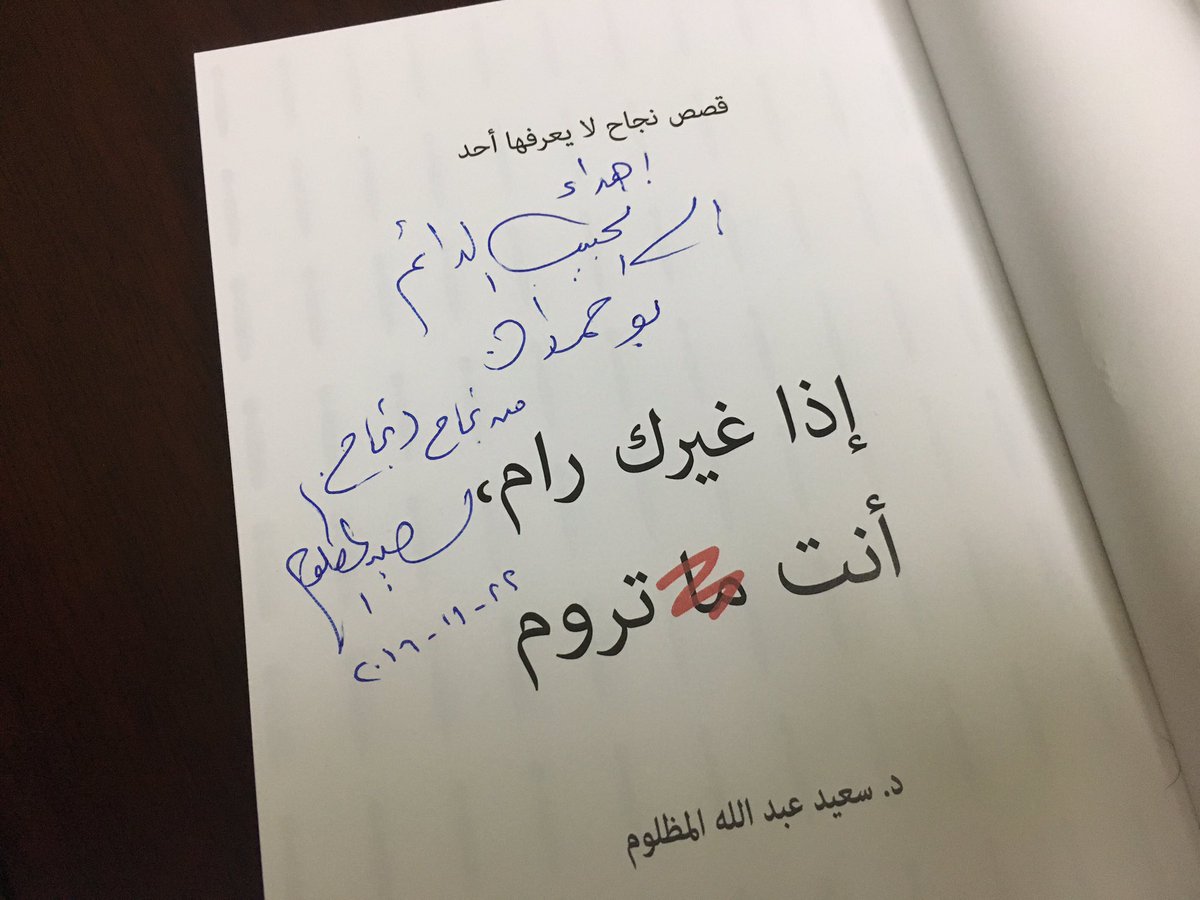 قصص نجاح لا يعرفها أحد
اهداء
الى الحبيب الدائم
بو حمدان
من نجاح لنجاح
سعيد المظلوم
٢٢-١١-٢٠١٦
إذا غيرك رام،
أنت ما تروم
د. سعيد عبد الله المظلوم